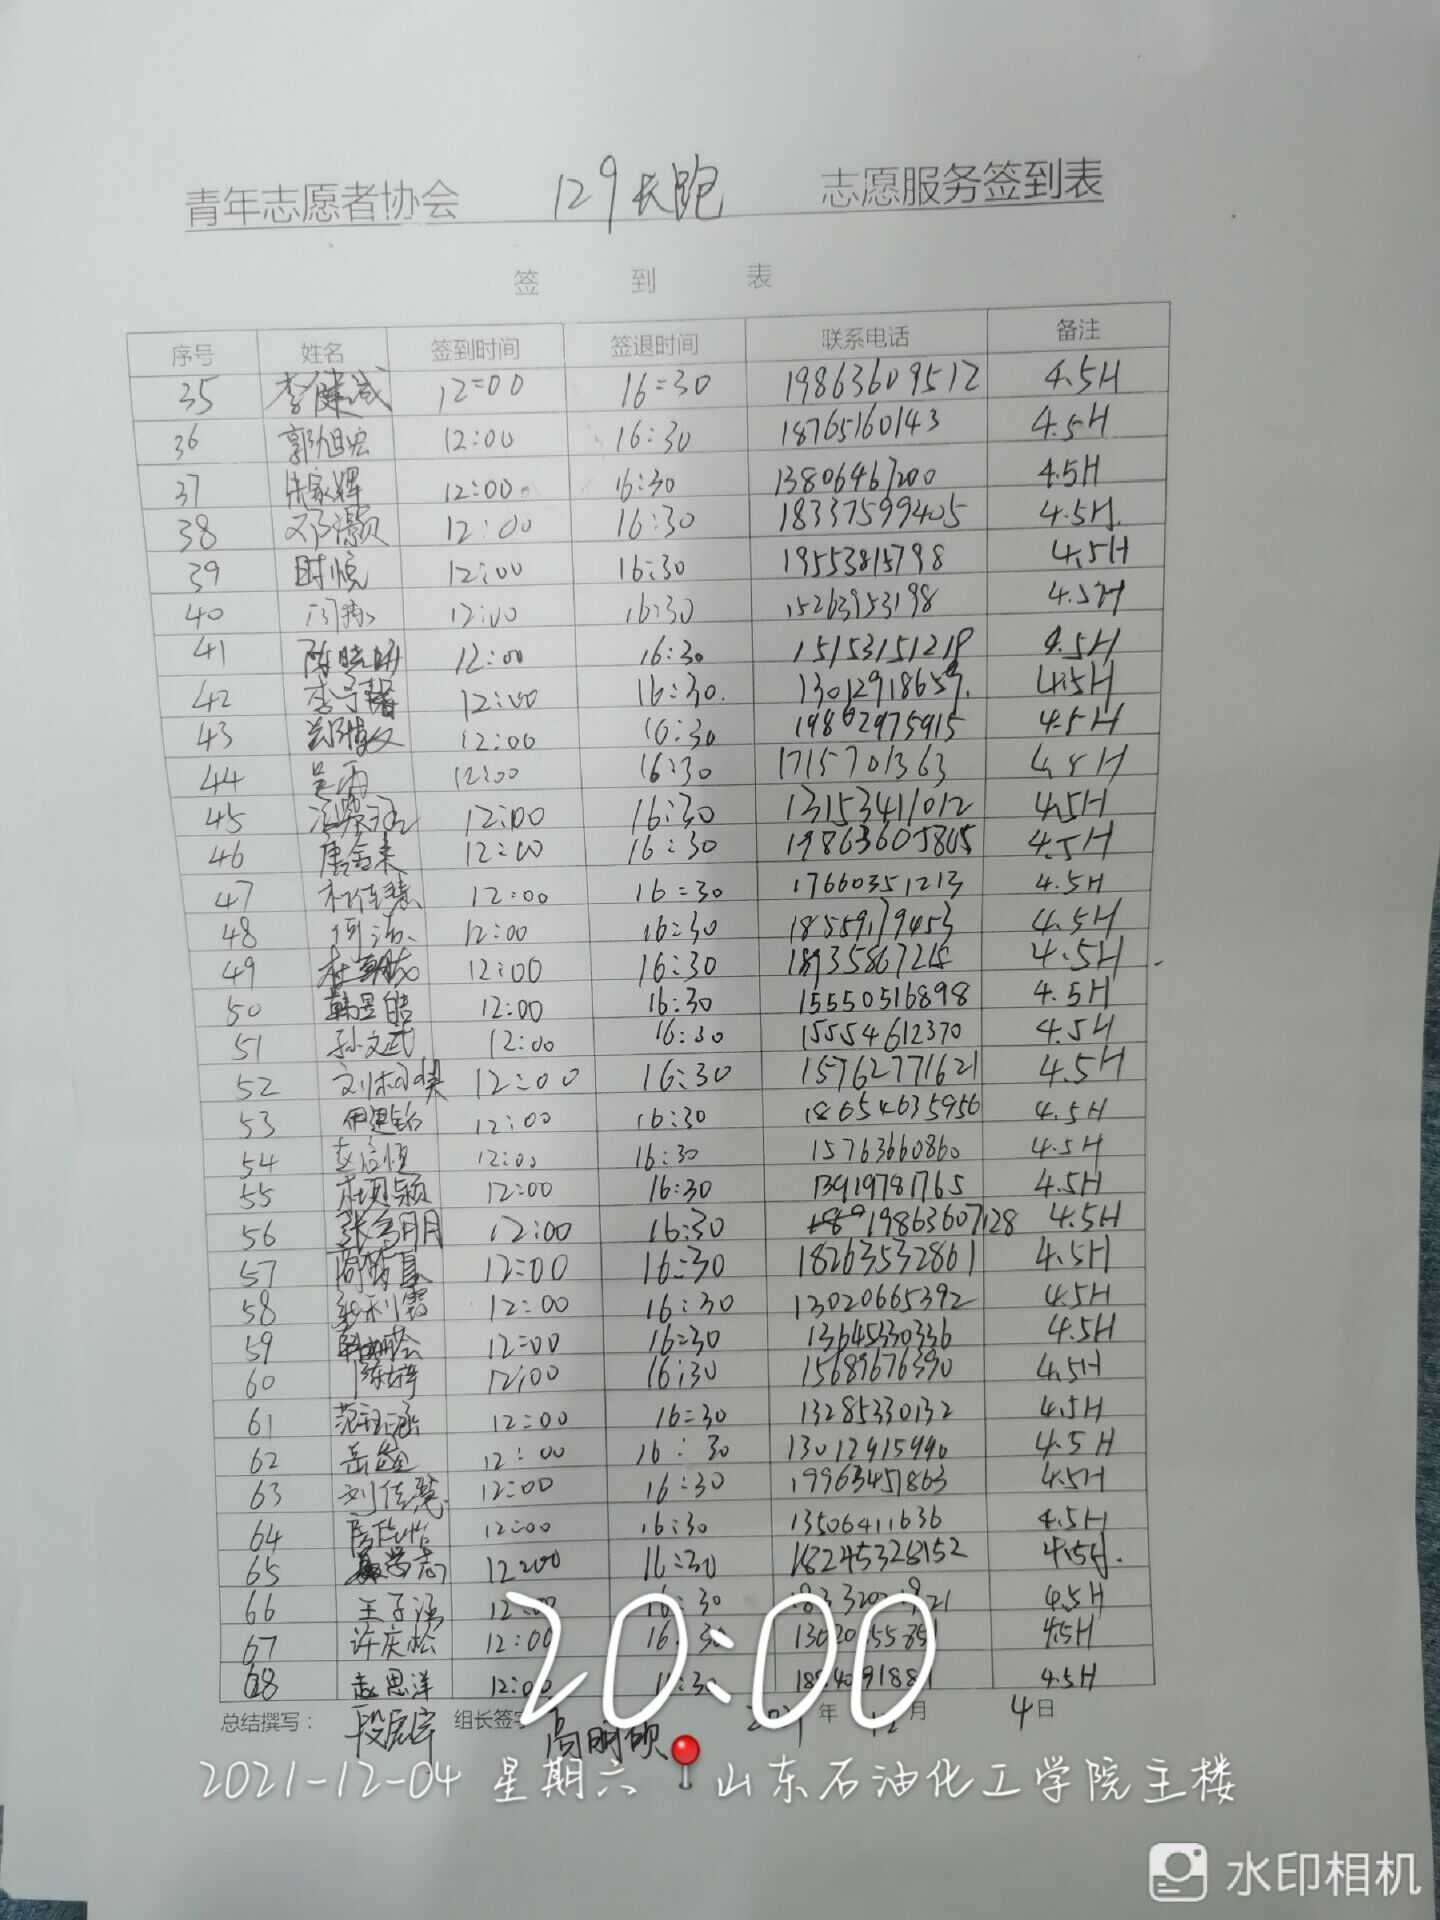 青年志愿者协会 129长跑 志愿服务签到表
签 到 表
序号 姓名 签到时间 签退时间 联系电话 备注
35 李健诚 12:00 16:30 19863609512 4.5H
36 郭旭宏 12:00 16:30 18765160143 4.5H
37 家辉 12:00 16:30 13806467200 4.5H
38 邓灏 12:00 16:30 18337599405 4.5H.
39 时悦 12:00 16:30 19553815798 4.5H
40 12:00 16:30 15263953198 4.5H
41 陈晓明 12:00 16:30 15153151218 4.5H
42 李子 12:00 16:30. 13012918659. 4.5H
43 郑 12:00 16:30 19862975915 4.5H
44 吴雨 12:00 16:30 1715701363 4.5H
45 12:00 16:30 13153411012 4.5H
46 唐金来 12:00 16:30 19863605865 4.5H
47 佳慧 12:00 16:30 17660351213 4.5H
48 何 12:00 16:30 18559179453 4.5H
49 杜 12:00 16:30 4.5H
50 韩昱皓 12:00 16:30 15550516898 4.5H
51 孙文武 12:00 16:30 15554612370 4.5H
52 刘 12:00 16:30 15762771621 4.5H
53 12:00 16:30 18654635956 4.5H
54 赵 12:00 16:30 15763660860 4.5H
55 12:00 16:30 13919781765 4.5H
56 张 12:00 16:30 19863607128 4.5H
57 12:00 16:30 18263532861 4.5H
58 12:00 16:30 13020665392 4.5H
59 12:00 16:30 13645330336 4.5H
60 陈梓 12:00 16:30 15689676390 4.5H
61 范钰涵 12:00 16:30 13285330132 4.5H
62 岳鑫 12:00 16:30 13012915990 4.5H
63 刘佳慧 12:00 16:30 19963451863 4.5H
64 12:00 16:30 13506411636 4.5H
65 学志 12:00 16:30 18245326152 4.5H.
66 王子涵 12:00 16:30 4.5H
67 许庆松 12:00 16:30 4.5H
68 赵思洋 12:00 16:30 4.5H
20:00
总结撰写: 段 组长签字 高明硕 2021年12月4日
2021-12-04 星期六 山东石油化工学院主楼
水印相机